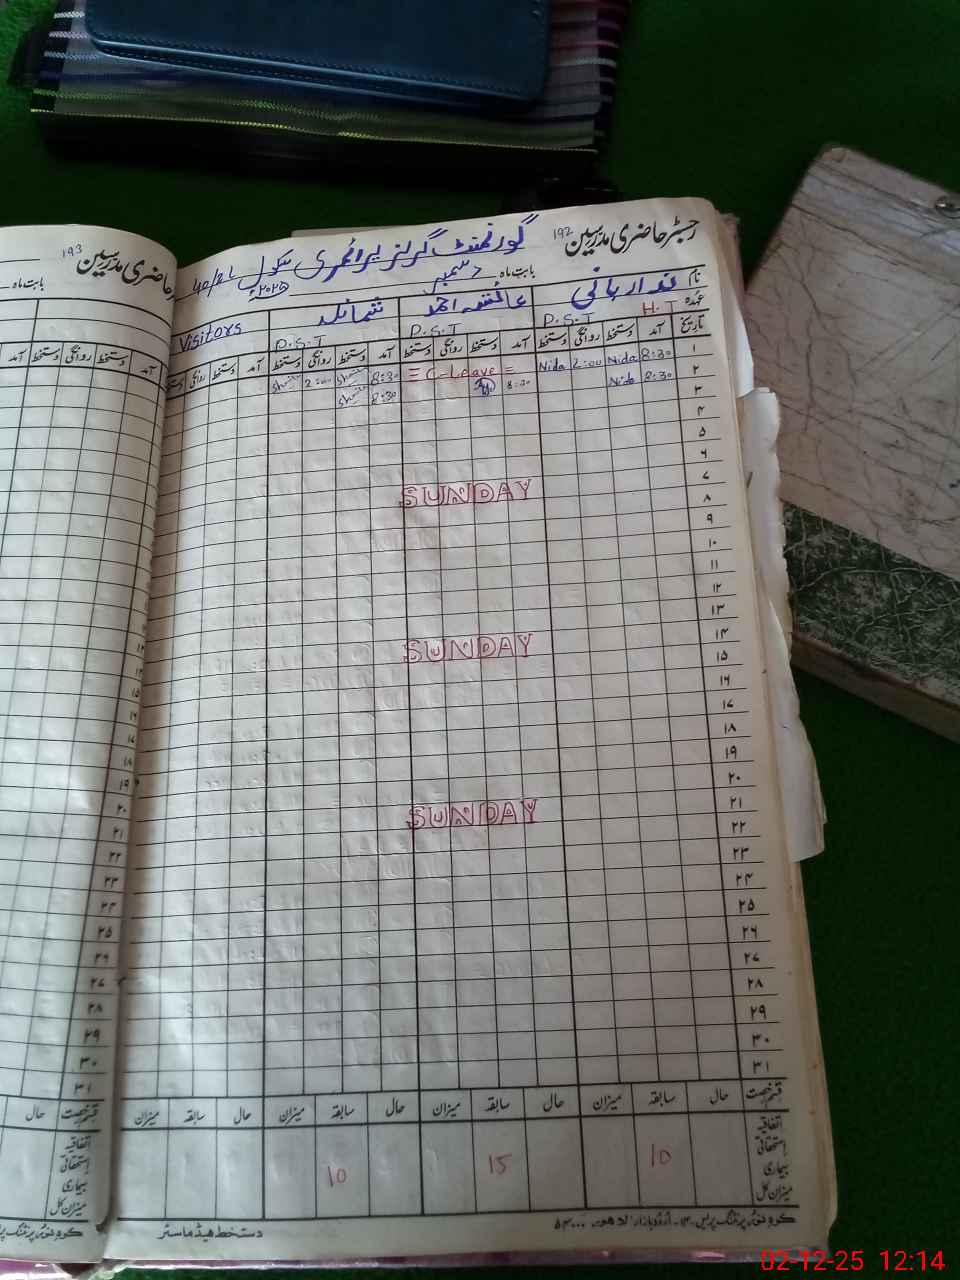 رجسٹر حاضری مدرسین ۱۹۲
گورنمنٹ گرلز پرائمری سکول 40/GL
بابت ماہ دسمبر ۲۰۲۵ء
نام ندا ربانی عائشہ احمد شمائلہ Visitors
عہدہ H.T P.S.T P.S.T P.S.T
تاریخ آمد دستخط روانگی دستخط آمد دستخط روانگی دستخط آمد دستخط روانگی دستخط آمد دستخط روانگی دستخط
۱ 8:30 Nida 2:00 Nida = C-Leave = 8:30 2:00
۲ 8:30 Nida 8:30 8:30
۳
۴
۵
۶
۷ SUNDAY
۸
۹
۱۰
۱۱
۱۲
۱۳
۱۴ SUNDAY
۱۵
۱۶
۱۷
۱۸
۱۹
۲۰
۲۱ SUNDAY
۲۲
۲۳
۲۴
۲۵
۲۶
۲۷
۲۸
۲۹
۳۰
۳۱
قسم رخصت حال سابقہ میزان حال سابقہ میزان حال سابقہ میزان حال سابقہ میزان
اتفاقیہ
استحقاقی
بیماری
میزان کل
10 15 10
دستخط ہیڈ ماسٹر
حاضری مدرسین ۱۹۳
بابت ماہ
آمد دستخط روانگی دستخط آمد
۱۳
۱۴
۱۵
۱۶
۱۷
۱۸
۱۹
۲۰
۲۱
۲۲
۲۳
۲۴
۲۵
۲۶
۲۷
۲۸
۲۹
۳۰
۳۱
قسم رخصت حال
اتفاقیہ
استحقاقی
بیماری
میزان کل
02-12-25 12:14